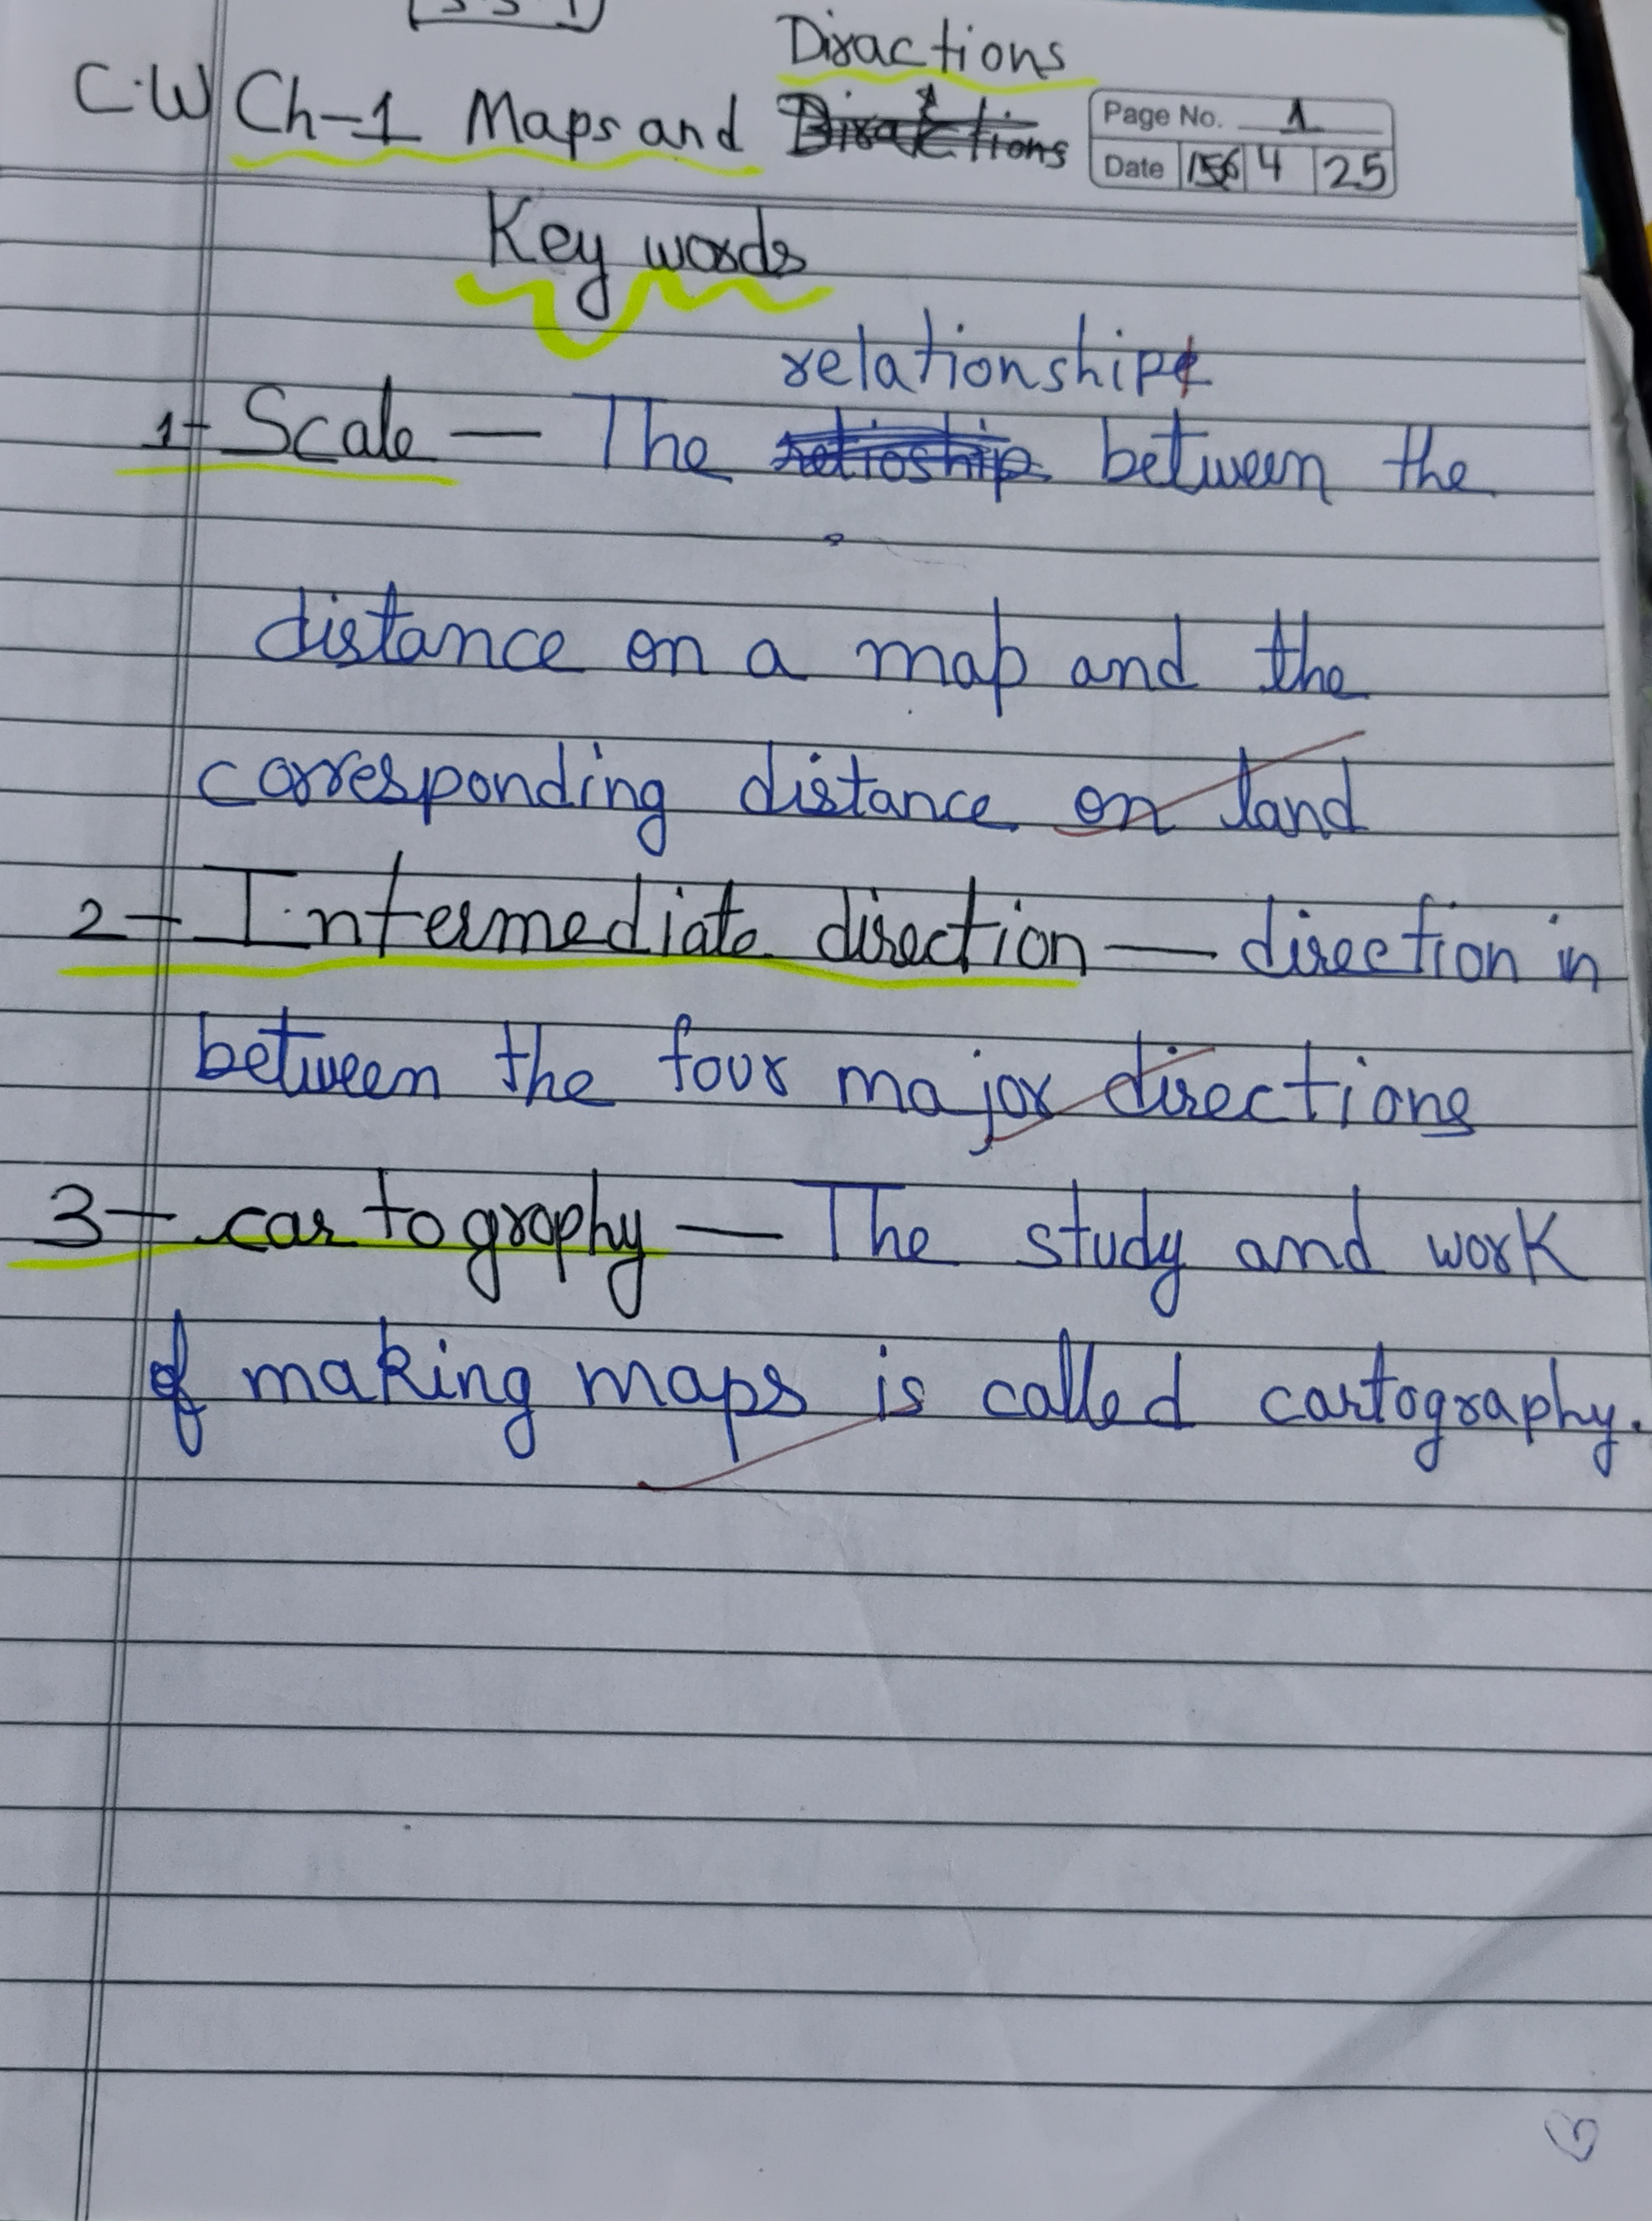 Diractions
C.W Ch-1 Maps and
Page No. 1
Date 4 25
Key words
relationship
1- Scale — The between the
distance on a map and the
corresponding distance on land
2- Intermediate direction — direction in
between the four major directions
3- cartography — The study and work
of making maps is called cartography.